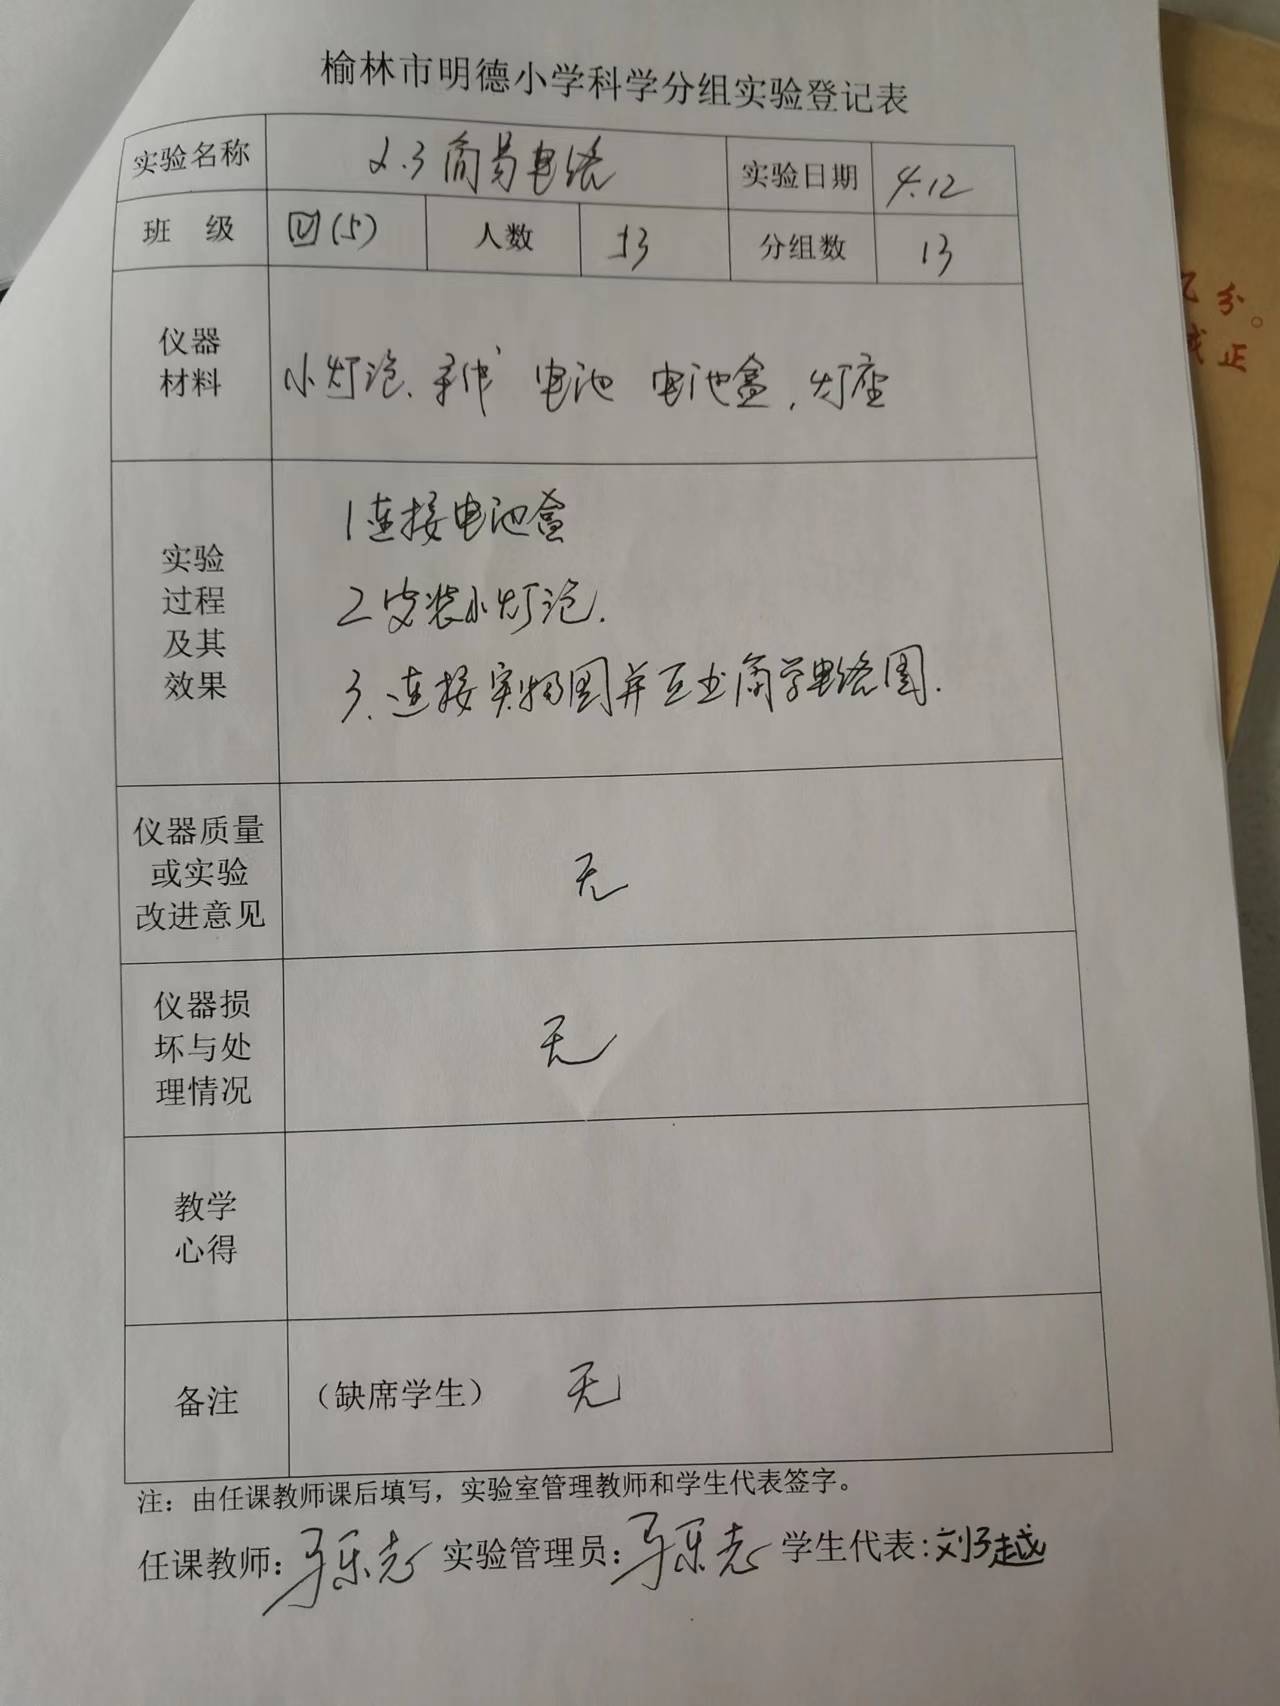 榆林市明德小学科学分组实验登记表
实验名称 2.3 简易电路 实验日期 4.12
班 级 四(5) 人数 13 分组数 13
仪器
材料
小灯泡、 电池 电池盒,灯座
实验
过程
及其
效果
1 连接电池盒
2 安装小灯泡.
3. 连接实物图并 电路图.
仪器质量
或实验
改进意见
无
仪器损
坏与处
理情况
无
教学
心得
备注 (缺席学生) 无
注:由任课教师课后填写,实验室管理教师和学生代表签字。
任课教师:马乐志 实验管理员:马乐志 学生代表:刘子越
亿 分。
成 正